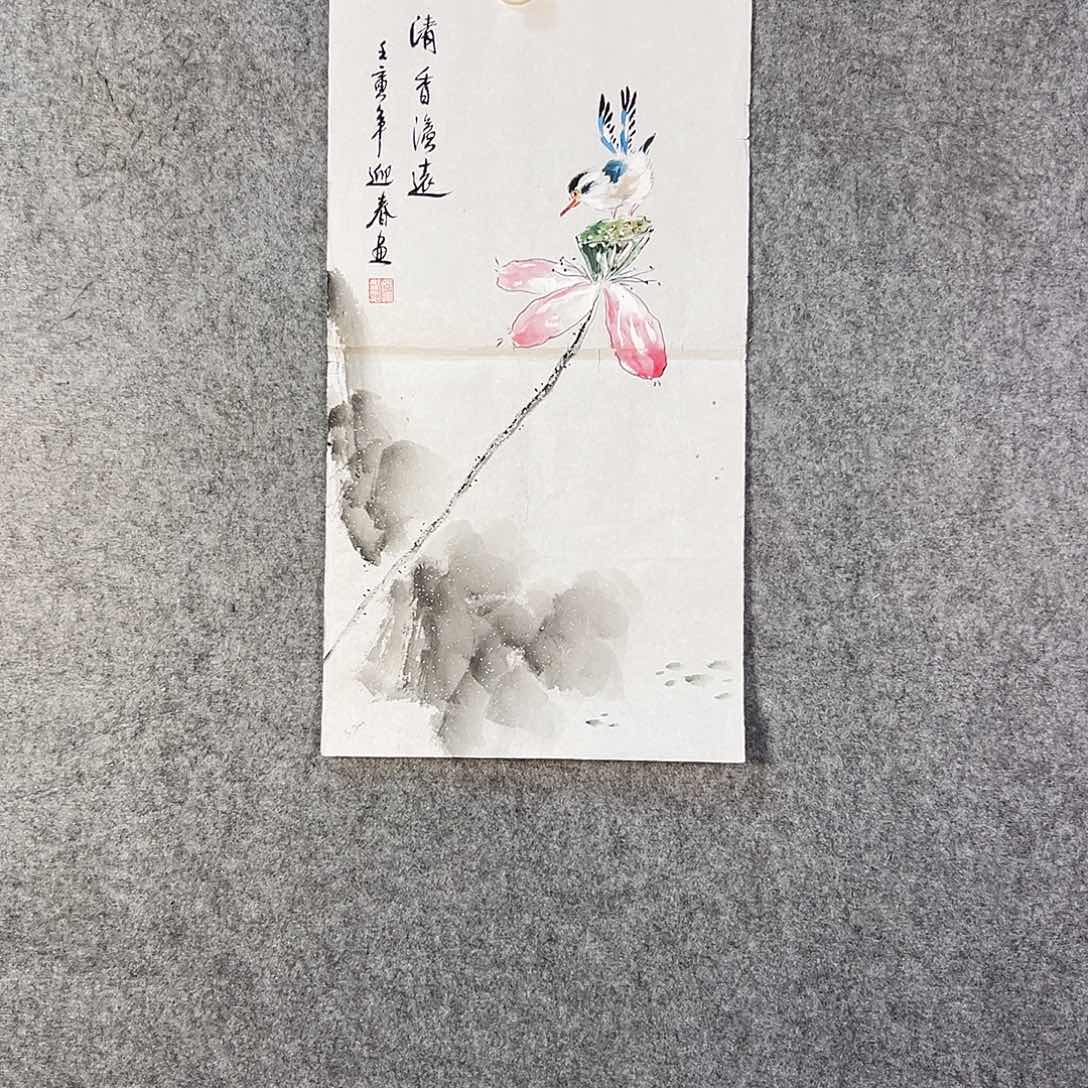 清香澹遠
壬寅年迎春画